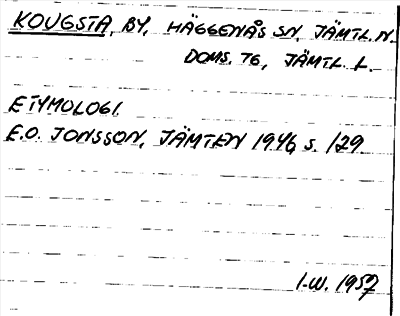 KOUGSTA, BY, HÄGGENÅS SN, JÄMTL. N.
DOMS. 76, JÄMTL. L.
ETYMOLOGI.
E.O. JONSSON, JÄMTEN 1946 s. 129
I-W. 1957